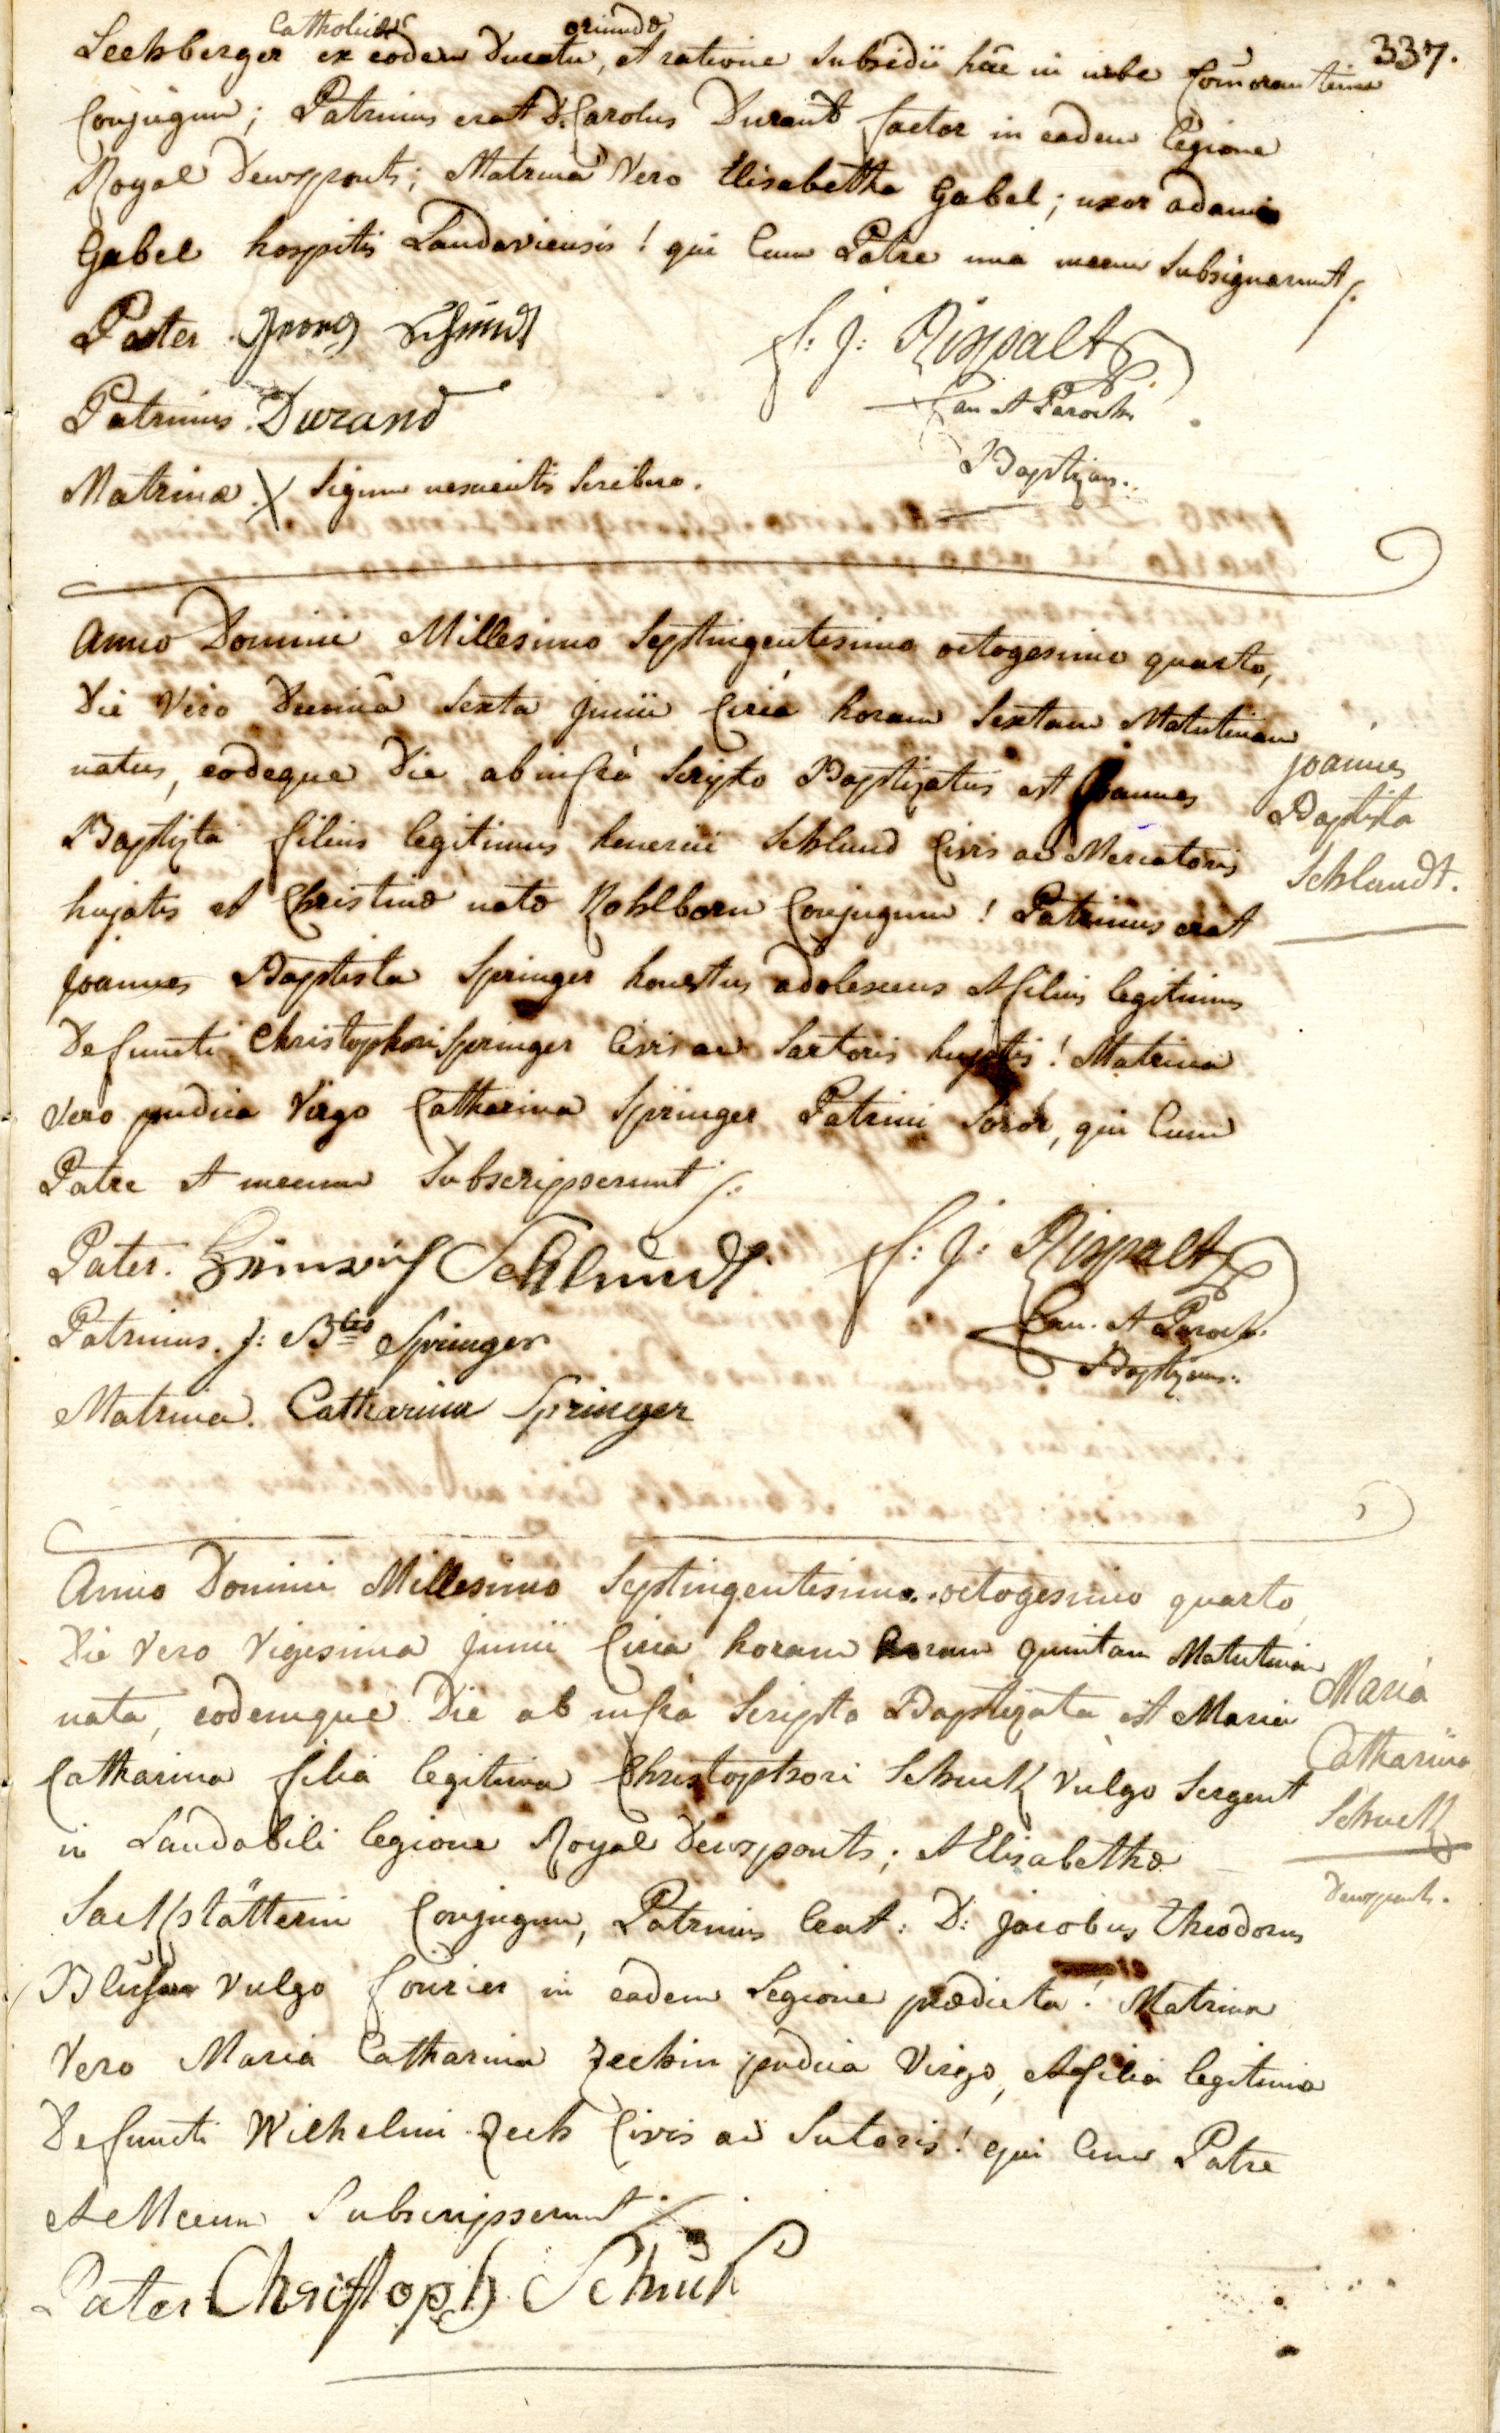 337.
Catholicæ oriundæ
Seehberger ex eodem Ducatu, et ratione Subsidii hãc in urbe Com̃orantium
Conjugum; Patrinus erat D: Carolus Durand factor in eadem Legione
Royal Deuxponts; Matrina Vero Elisabetha Gabel; uxor adami
Gabel hospitis Landaviensis! qui Cum Patre una mecum Subsignarunt /.
Pater. Georg Schmidt
Patrinus. Durand
Matrinæ. X Signum nescientis Scribere.
f: j: Rispalt
Can et Paroch.
Baptizans.
Anno Domini Millesimo Septingentesimo octogesimo quarto,
Die Vero Decima Sexta Junii Circa horam Sextam Matutinam
natus, eodeque Die ab infra Scripto Baptizatus est Joannes
Baptista filius legitimus henerici Schland Civis ac Mercatoris
hujatis et Christinæ natæ Kohlborn Conjugum! Patrinus erat
Joannes Baptista Springer honestus adolescens et filius legitimus
Defuncti Christophori Springer Civis ac Sartoris hujatis! Matrina
Vero pudica Virgo Catharina Springer Patrini Soror, qui Cum
Patre et mecum Subscripserunt /.
Joannes
Baptista
Schlandt.
Pater. Heinrich Schlundt
Patrinus. J: Bta Springer
Matrina. Catharina Springer
f: j: Rispalt
Can. et Paroch.
Baptizans.
Anno Domini Millesimo Septingentesimo octogesimo quarto,
Die Vero Vigesima Junii Circa horam horam quintam Matutinam
nata, eodemque Die ab infra Scripto Baptizata est Maria
Catharina filia legitima Christophori Schuck Vulgo Sergent
in Laudabili legione Royal Deuxponts; et Elisabethæ
Sackstätterin Conjugum, Patrinus Erat: D: Jacobus Theodorus
Vulgo fourier in eadem Legione prædicta! Matrina
Vero Maria Catharina Zechin pudica Virgo, et filia legitima
Defuncti Wilhelmi Zech Civis ac Sutoris! qui Cum Patre
et Mecum Subscripserunt /.
Maria
Catharina
Schuck
Deuxponts.
Pater Christoph Schuck